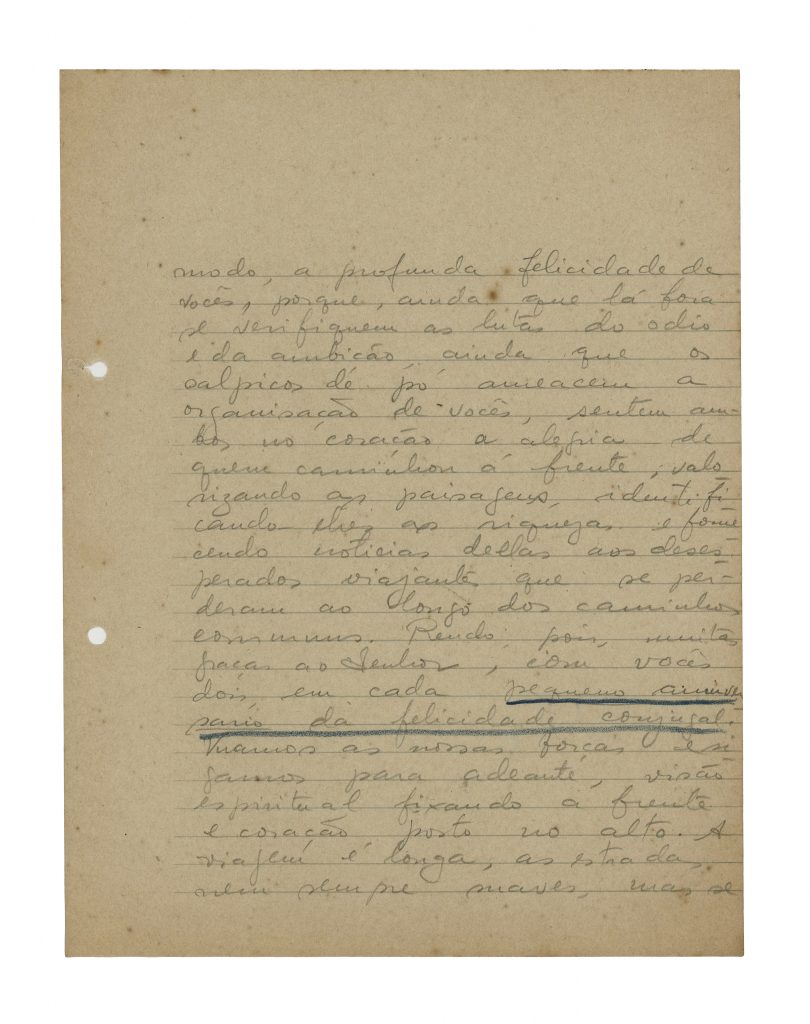 modo, a profunda felicidade de
vocês, porque, ainda que lá fora
se verifiquem as lutas do odio
e da ambicão ainda que os
salpicos de pó ameacem a
organisação de vocês, sentem am-
bos no coração a alegria de
quem caminhou á frente, valo
rizando as paisagens, identifi
cando-lhes as riquezas e forne
cendo noticias dellas aos deses-
perados viajantes que se per-
deram ao longo dos caminhos
communs. Rendo, pois, muitas
graças ao Senhor, com vocês
dois, em cada pequeno anniver
sario da felicidade conjugal.
Unamos as nossas forças e si
gamos para adeante, visão
espiritual fixando a frente
e coração posto no alto. A
viagem é longa, as estradas
nem sempre suaves, mas se